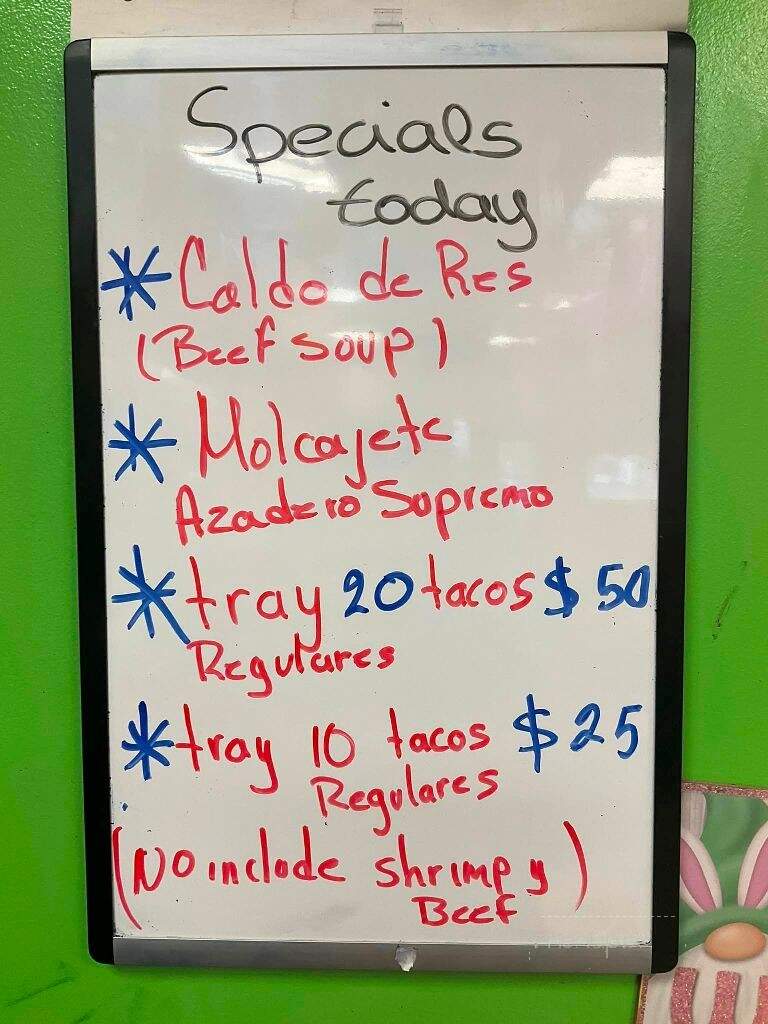 Specials
today
* Caldo de Res
(Beef soup)
* Molcajete
Azadero Supremo
* tray 20 tacos $50
Regulares
* tray 10 tacos $25
Regulares
(No include shrimp y)
Beef